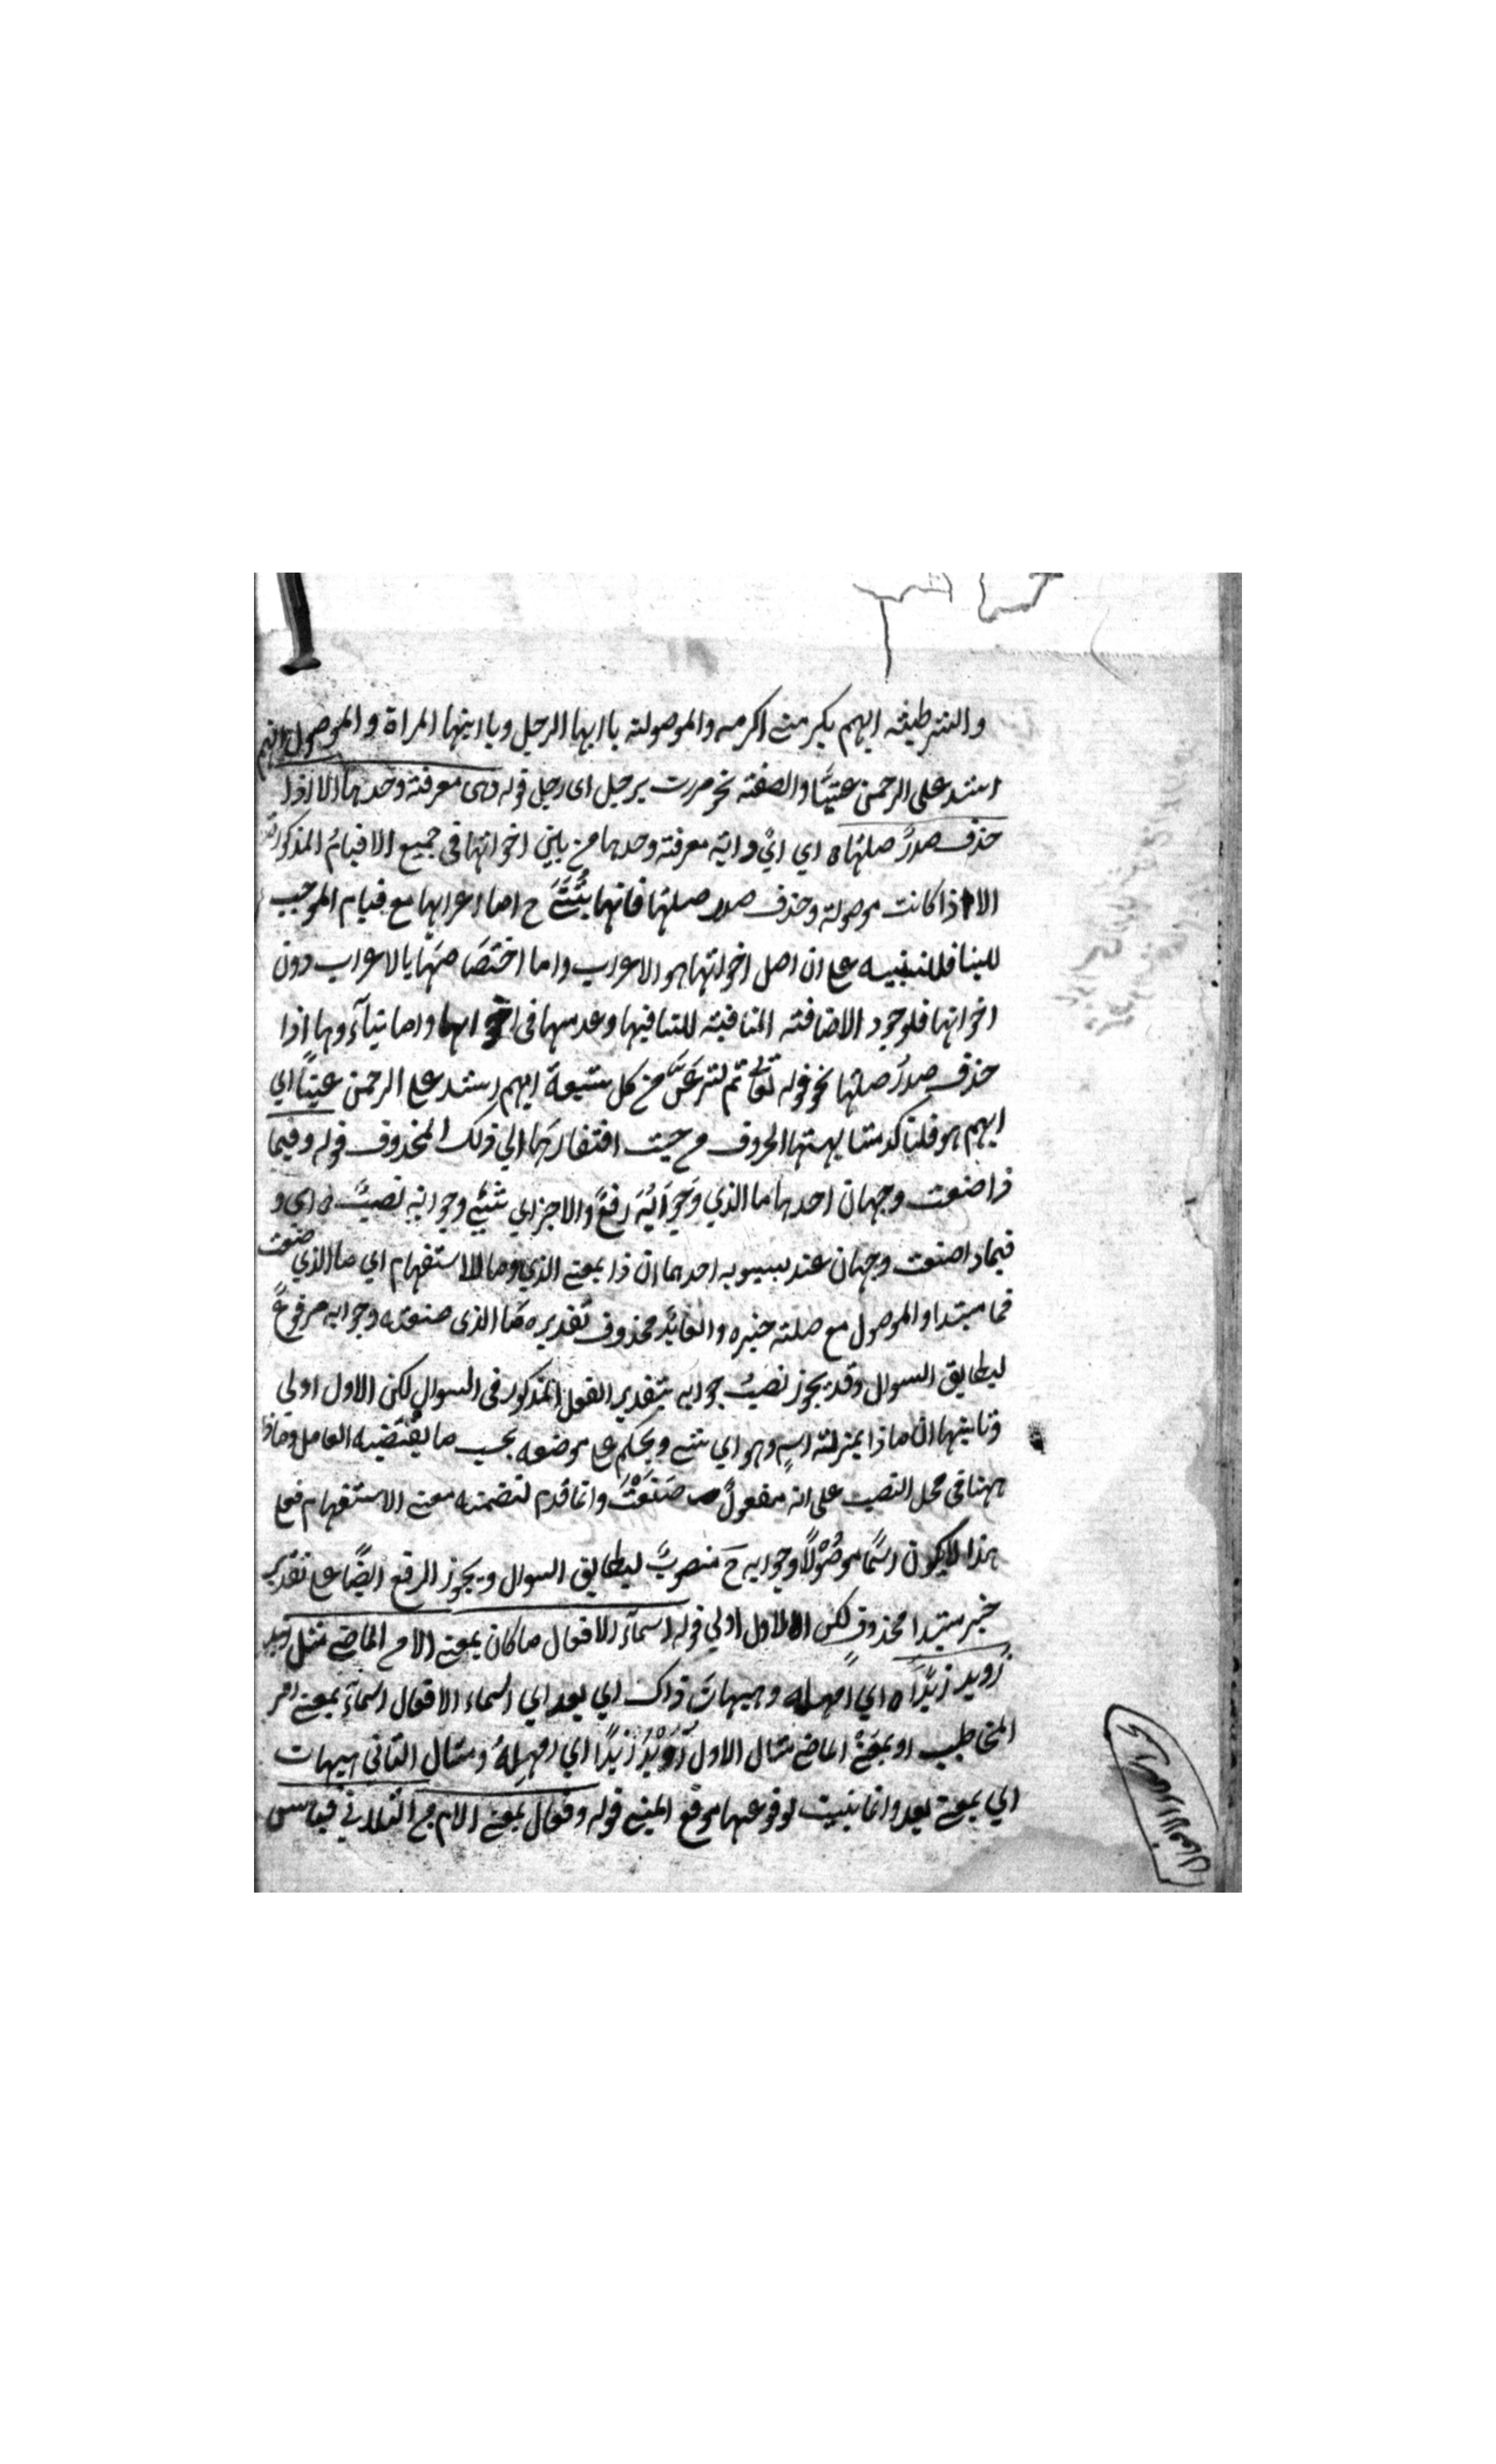 والشرطية ايهم يكرمنى اكرمه والموصولة يا ايها الرجل ويا ايتها المراة والموصول ايهم
اشد على الرحمن عتيًّا والصفة نحو مررت برجل اى رجل قوله وهى معرفة وحدها الا اذا
حذف صدرُ صلتها ه اي ايٌّ واية معرفة وحدها من بين اخواتها فى جميع الاقسام المذكورة
الا اذا كانت موصولة وحذف صدر صلتها فانها بُنِيَتْ ح اما اعرابها مع قيام الموجب
للبنا فللتنبيه على ان اصل اخواتها هو الاعراب واما اختصاصها بالاعراب دون
اخواتها فلوجود الاضافة المنافية للبنا فيها وعدمها فى اخواتها واما بناؤها اذا
حذف صدرُ صلتها نحو قوله تعالى ثم لننزعنّ من كل شيعة ايهم اشد على الرحمن عتيًا اي
ايهم هو فلتاكد مشابهتها الحروف من حيث افتقارها الي ذلك المحذوف قوله وفيما
ذا صنعت وجهان احدها ما الذي وجوابُه رفعٌ والاخر اي شئ وجوابه نصبٌ ه اى و
فيماذا صنعت وجهان عند سيبويه احدهما ان ذا بمعنى الذي وما للاستفهام اي ما الذي صنعت
فما مبتدا والموصول مع صلته خبره والعايد محذوف تقديره ما الذى صنعته وجوابه مرفوعٌ
ليطابق السوال وقد يجوز نصبُ جوابه بتقدير الفعل المذكور فى السوال لكن الاول اولي
وثانيتها ان ماذا بمنزلة اسمٍ وهو اي شئ ويحكم على موضعه بحسب ما يقتضيه العامل وماذا
ههنا فى محل النصب على انه مفعولُ صَنَعْتَ وانما قدم لتضمنه معنى الاستفهام فعلى
هذا لا يكون اسمًا موصولًا وجوابه حَ منصوبٌ ليطابق السوال ويجوز الرفع ايضًا على تقدير
خبر مبتدا محذوفٍ لكن الاول اولي قوله اسماء الافعال ما كان بمعنى الامر الماضى مثل
رُويد زيدًا ه اي امهله وهيهات ذاك اي بعد اي اسماء الافعال اسماء بمعنى امر
المخاطب او بمعنى الماضى مثال الاول رُوَيْدَ زيدًا اي امهِلهُ ومثال الثانى هيهات
اي بمعنى بعد وانما بنيت لوقوعها موقع المبنى قوله وفعال بمعنى الامر من الثلاثي قياس